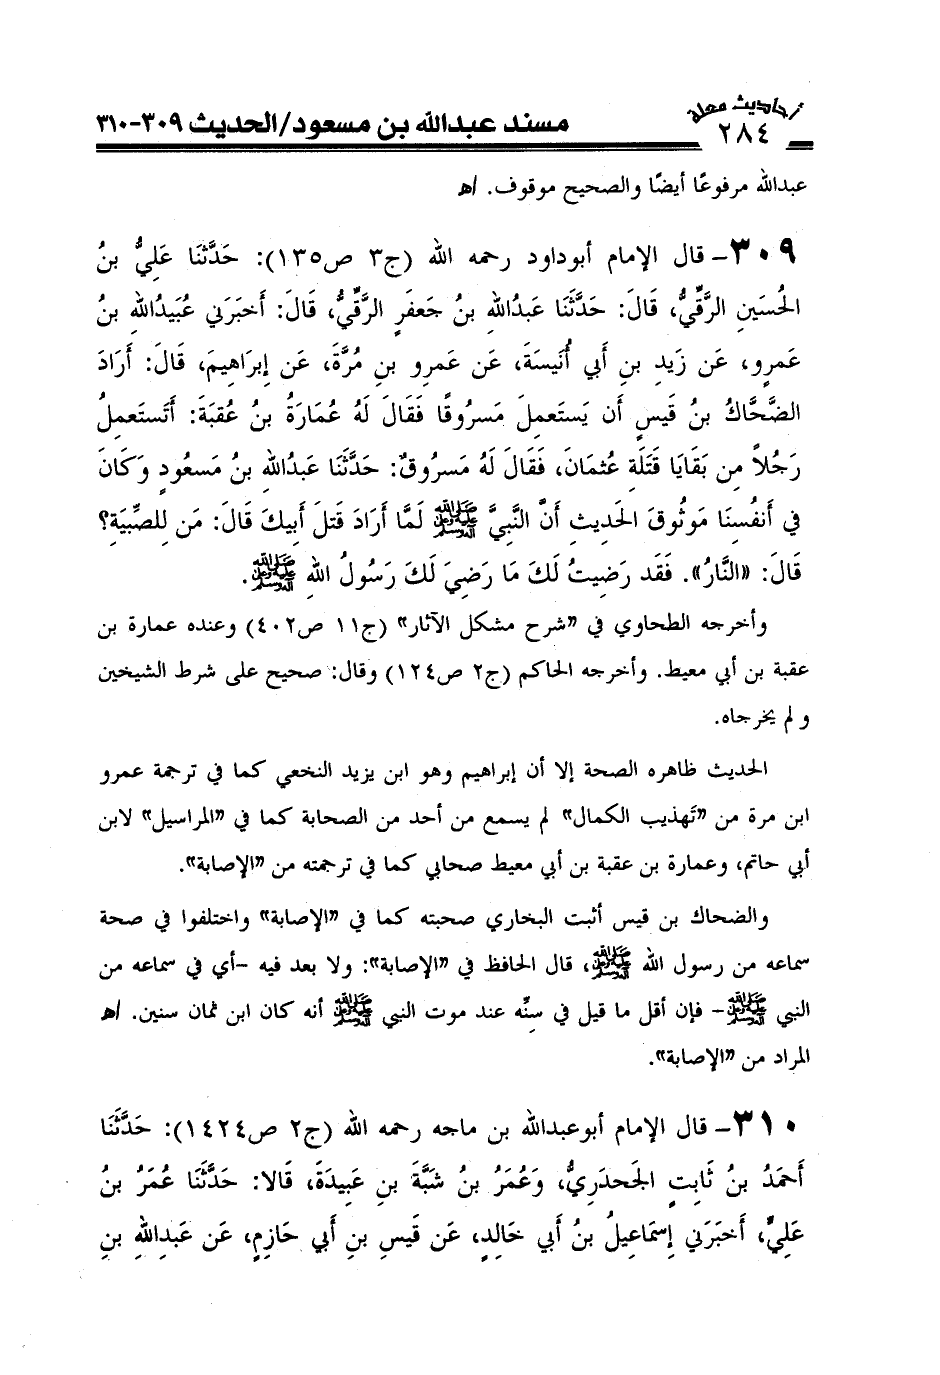 أحاديث معلة
٢٨٤
مسند عبدالله بن مسعود/الحديث ٣٠٩-٣١٠
عبدالله مرفوعًا أيضًا والصحيح موقوف. اﻫ
٣٠٩- قال الإمام أبوداود رحمه الله (ج٣ ص١٣٥): حَدَّثَنَا عَلِيُّ بنُ
الحُسَينِ الرَّقِّيُّ، قَالَ: حَدَّثَنَا عَبدُاللهِ بنُ جَعفَرٍ الرَّقِّيُّ، قَالَ: أَخبَرَني عُبَيدُاللهِ بنُ
عَمرٍو، عَن زَيدِ بنِ أَبي أُنَيسَةَ، عَن عَمرِو بنِ مُرَّةَ، عَن إِبرَاهِيمَ، قَالَ: أَرَادَ
الضَّحَّاكُ بنُ قَيسٍ أَن يَستَعمِلَ مَسرُوقًا فَقَالَ لَهُ عُمَارَةُ بنُ عُقبَةَ: أَتَستَعمِلُ
رَجُلاً مِن بَقَايَا قَتَلَةِ عُثمَانَ، فَقَالَ لَهُ مَسرُوقٌ: حَدَّثَنَا عَبدُاللهِ بنُ مَسعُودٍ وَكَانَ
في أَنفُسِنَا مَوثُوقَ الحَدِيثِ أَنَّ النَّبِيَّ ﷺ لَمَّا أَرَادَ قَتلَ أَبِيكَ قَالَ: مَن لِلصِّبيَةِ؟
قَالَ: «النَّارُ». فَقَد رَضِيتُ لَكَ مَا رَضِيَ لَكَ رَسُولُ اللهِ ﷺ.
وأخرجه الطحاوي في «شرح مشكل الآثار» (ج١١ ص٤٠٢) وعنده عمارة بن
عقبة بن أبي معيط. وأخرجه الحاكم (ج٢ ص١٢٤) وقال: صحيح على شرط الشيخين
ولم يخرجاه.
الحديث ظاهره الصحة إلا أن إبراهيم وهو ابن يزيد النخعي كما في ترجمة عمرو
ابن مرة من «تهذيب الكمال» لم يسمع من أحد من الصحابة كما في «المراسيل» لابن
أبي حاتم، وعمارة بن عقبة بن أبي معيط صحابي كما في ترجمته من «الإصابة».
والضحاك بن قيس أثبت البخاري صحبته كما في «الإصابة» واختلفوا في صحة
سماعه من رسول الله ﷺ، قال الحافظ في «الإصابة»: ولا بعد فيه -أي في سماعه من
النبي ﷺ- فإن أقل ما قيل في سِنِّه عند موت النبي ﷺ أنه كان ابن ثمان سنين. اﻫ
المراد من «الإصابة».
٣١٠- قال الإمام أبوعبدالله بن ماجه رحمه الله (ج٢ ص١٤٢٤): حَدَّثَنَا
أَحمَدُ بنُ ثَابِتٍ الجَحدَرِيُّ، وَعُمَرُ بنُ شَبَّةَ بنِ عَبِيدَةَ، قَالا: حَدَّثَنَا عُمَرُ بنُ
عَلِيٍّ، أَخبَرَني إِسمَاعِيلُ بنُ أَبي خَالِدٍ، عَن قَيسِ بنِ أَبي حَازِمٍ، عَن عَبدِاللهِ بنِ